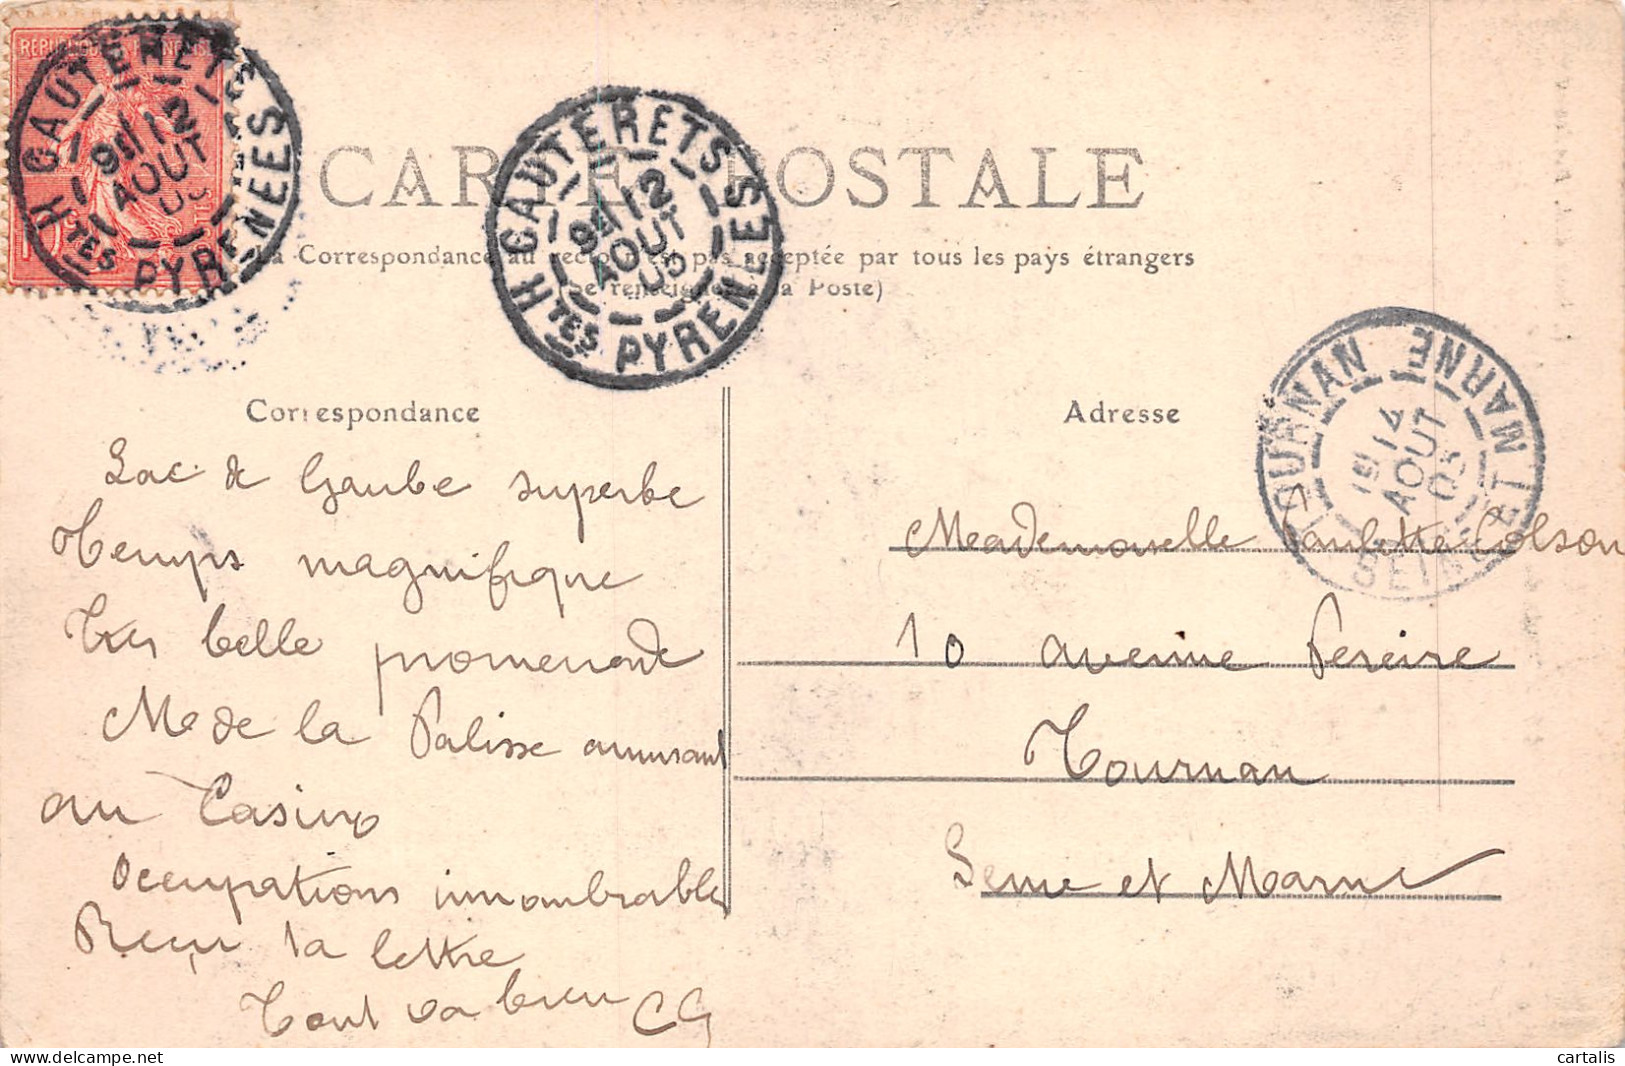 RÉPUBLIQUE FRANÇAISE
CAUTERETS
9E 12
AOUT
05
HTES PYRENEES
CAUTERETS
9E 12
AOUT
05
HTES PYRENEES
CARTE POSTALE
La Correspondance au recto n'est pas acceptée par tous les pays étrangers
(Se renseigner à la Poste)
TOURNAN
14
AOUT
05
SEINE ET MARNE
Correspondance
Lac de Gaube superbe
Temps magnifique
Très belle promenade
Me de la Palisse amusant
au Casino
Occupations innombrables
Reçu ta lettre
Tout va bien CG
Adresse
Mademoiselle Paulette Colson
10 avenue Pereire
Tournan
Seine et Marne
cartalis